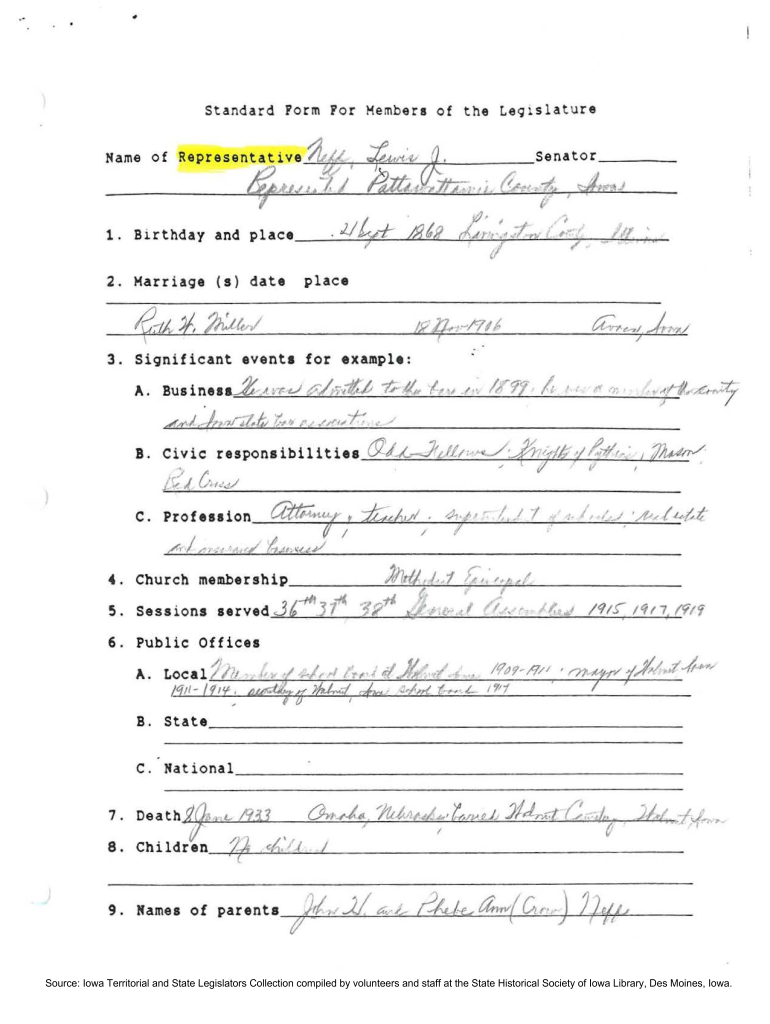 Standard Form For Members of the Legislature
Name of Representative Neff, Lewis J. Senator
Represented Pattawattamie County, Iowa
1. Birthday and place 2 Sept 1868 Livingston County, Illinois
2. Marriage (s) date place
Ruth H. Miller 18 Nov 1906 Avoca, Iowa
3. Significant events for example:
A. Business He was admitted to the bar in 1899. he was a member of the county
and Iowa state bar associations
B. Civic responsibilities Odd Fellows; Knights of Pythias; Mason;
Red Cross
C. Profession Attorney, teacher; superintendent of schools; real estate
and insurance business
4. Church membership Methodist Episcopal
5. Sessions served 36th 37th 38th General Assemblies 1915, 1917, 1919
6. Public Offices
A. Local Member of school board at Walnut Iowa 1909-1911; mayor of Walnut Iowa
1911-1914; of Walnut, Iowa school board 1917
B. State
C. National
7. Death 8 June 1933 Omaha, Nebraska buried Walnut Cemetery, Walnut, Iowa
8. Children No children
9. Names of parents John H. and Phebe Ann (Crow) Neff
Source: Iowa Territorial and State Legislators Collection compiled by volunteers and staff at the State Historical Society of Iowa Library, Des Moines, Iowa.